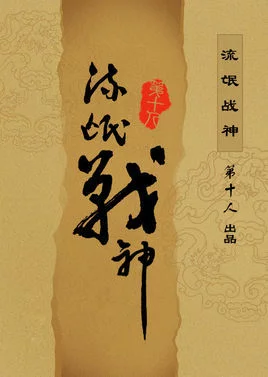 流氓战神
第十人
流氓战神
第十人 出品